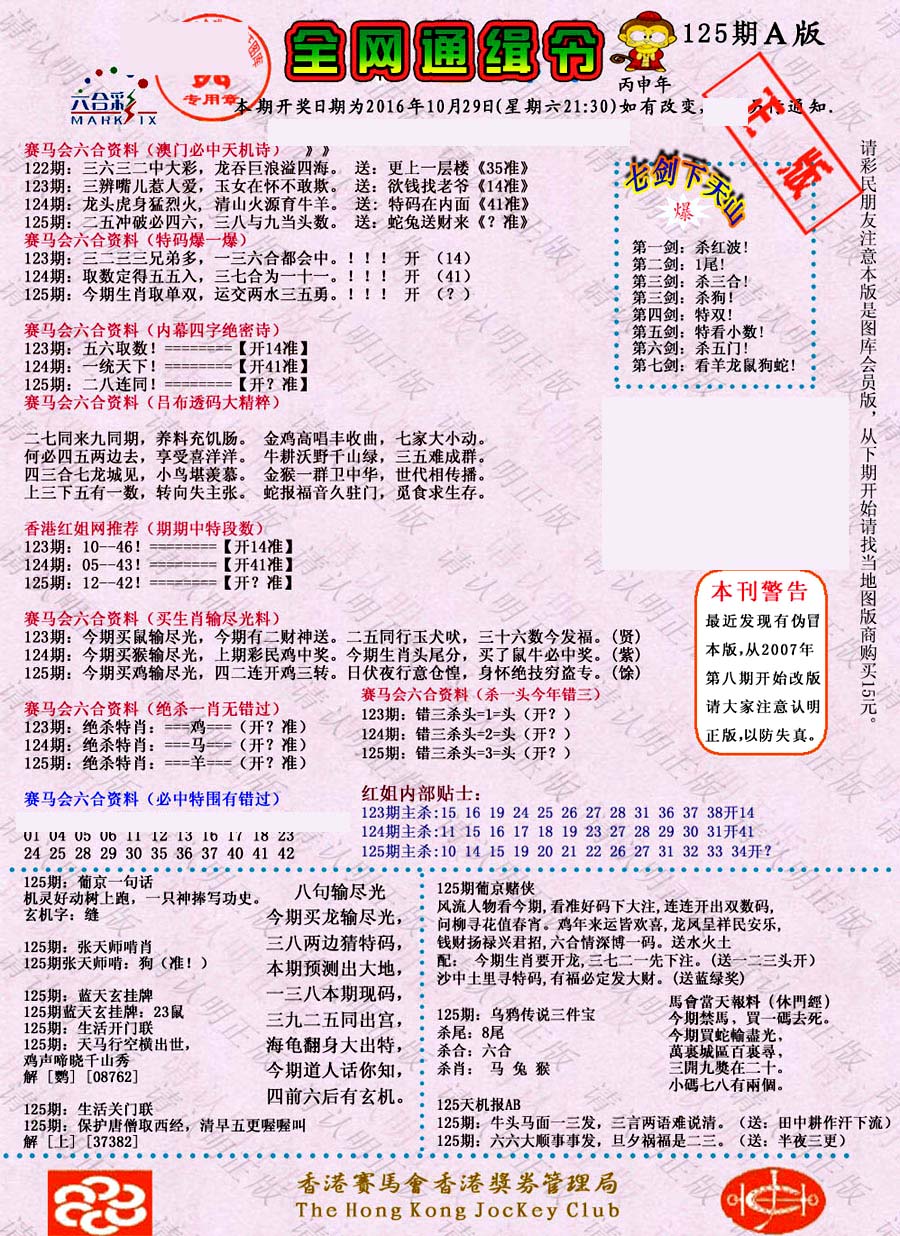 全网通缉令
丙申年
125期A版
六合彩
MARK
IX
专用章
图库
正版
本期开奖日期为2016年10月29日(星期六21:30)如有改变,
通知.
赛马会六合资料（澳门必中天机诗） 》》
122期：三六三二中大彩，龙吞巨浪溢四海。 送：更上一层楼《35准》
123期：三辨嘴儿惹人爱，玉女在怀不敢欺。 送：欲钱找老爷《14准》
124期：龙头虎身猛烈火，清山火源育牛羊。 送：特码在内面《41准》
125期：二五冲破必四六，三八与九当头数。 送：蛇兔送财来《？准》
赛马会六合资料（特码爆一爆）
123期：三二三三兄弟多，一三六合都会中。！！！ 开 （14）
124期：取数定得五五入，三七合为一十一。！！！ 开 （41）
125期：今期生肖取单双，运交两水三五勇。！！！ 开 （？）
七剑下天山
爆
第一剑：杀红波！
第二剑：1尾！
第三剑：杀三合！
第三剑：杀狗！
第四剑：特双！
第五剑：特看小数！
第六剑：杀五门！
第七剑：看羊龙鼠狗蛇！
请彩民朋友注意本版是图库会员版，从下期开始请找当地图版商购买15元。
赛马会六合资料（内幕四字绝密诗）
123期：五六取数！========【开14准】
124期：一统天下！========【开41准】
125期：二八连同！========【开？准】
赛马会六合资料（吕布透码大精粹）
二七同来九同期，养料充饥肠。 金鸡高唱丰收曲，七家大小动。
何必四五两边去，享受喜洋洋。 牛耕沃野千山绿，三五难成群。
四三合七龙城见，小鸟堪羡慕。 金猴一群卫中华，世代相传播。
上三下五有一数，转向失主张。 蛇报福音久驻门，觅食求生存。
香港红姐网推荐（期期中特段数）
123期：10--46！========【开14准】
124期：05--43！========【开41准】
125期：12--42！========【开？准】
本刊警告
最近发现有伪冒
本版,从2007年
第八期开始改版
请大家注意认明
正版,以防失真。
赛马会六合资料（买生肖输尽光料）
123期：今期买鼠输尽光，今期有二财神送。二五同行玉犬吠，三十六数今发福。(贤)
124期：今期买猴输尽光，上期彩民鸡中奖。今期生肖头尾分，买了鼠牛必中奖。(紫)
125期：今期买鸡输尽光，四二连开鸡三转。日伏夜行意仓惶，身怀绝技穷盗专。(馀)
赛马会六合资料（绝杀一肖无错过）
123期：绝杀特肖：===鸡===（开？准）
124期：绝杀特肖：===马===（开？准）
125期：绝杀特肖：===羊===（开？准）
赛马会六合资料（杀一头今年错三）
123期：错三杀头=1=头（开？）
124期：错三杀头=2=头（开？）
125期：错三杀头=3=头（开？）
赛马会六合资料（必中特围有错过）
01 04 05 06 11 12 13 16 17 18 23
24 25 28 29 30 35 36 37 40 41 42
红姐内部贴士：
123期主杀:15 16 19 24 25 26 27 28 31 36 37 38开14
124期主杀:11 15 16 17 18 19 23 27 28 29 30 31开41
125期主杀:10 14 15 19 20 21 22 26 27 31 32 33 34开？
125期：葡京一句话
机灵好动树上跑，一只神捧写功史。
玄机字：缝
125期：张天师啃肖
125期张天师啃：狗（准！）
125期：蓝天玄挂牌
125期蓝天玄挂牌：23鼠
125期：生活开门联
125期：天马行空横出世，
鸡声啼晓千山秀
解［鹦］［08762］
125期：生活关门联
125期：保护唐僧取西经，清早五更喔喔叫
解［上］［37382］
八句输尽光
今期买龙输尽光，
三八两边猜特码，
本期预测出大地，
一三八本期现码，
三九二五同出宫，
海龟翻身大出特，
今期道人话你知，
四前六后有玄机。
125期葡京赌侠
风流人物看今期,看准好码下大注,连连开出双数码,
问柳寻花值春宵。鸡年来运皆欢喜,龙凤呈祥民安乐,
钱财扬禄兴君招,六合情深博一码。送水火土
配： 今期生肖要开龙,三七二一先下注。(送一二三头开）
沙中土里寻特码,有福必定发大财。(送蓝绿奖)
125期：乌鸦传说三件宝
杀尾：8尾
杀合：六合
杀肖： 马 兔 猴
馬會當天報料（休門經）
今期禁馬，買一碼去死。
今期買蛇輸盡光，
萬裏城區百裏尋，
三開九獎在二十。
小碼七八有兩個。
125天机报AB
125期：牛头马面一三发，三言两语难说清。（送：田中耕作汗下流）
125期：六六大顺事事发，旦夕祸福是二三。（送：半夜三更）
香港賽馬會香港獎券管理局
The Hong Kong JocKey Club